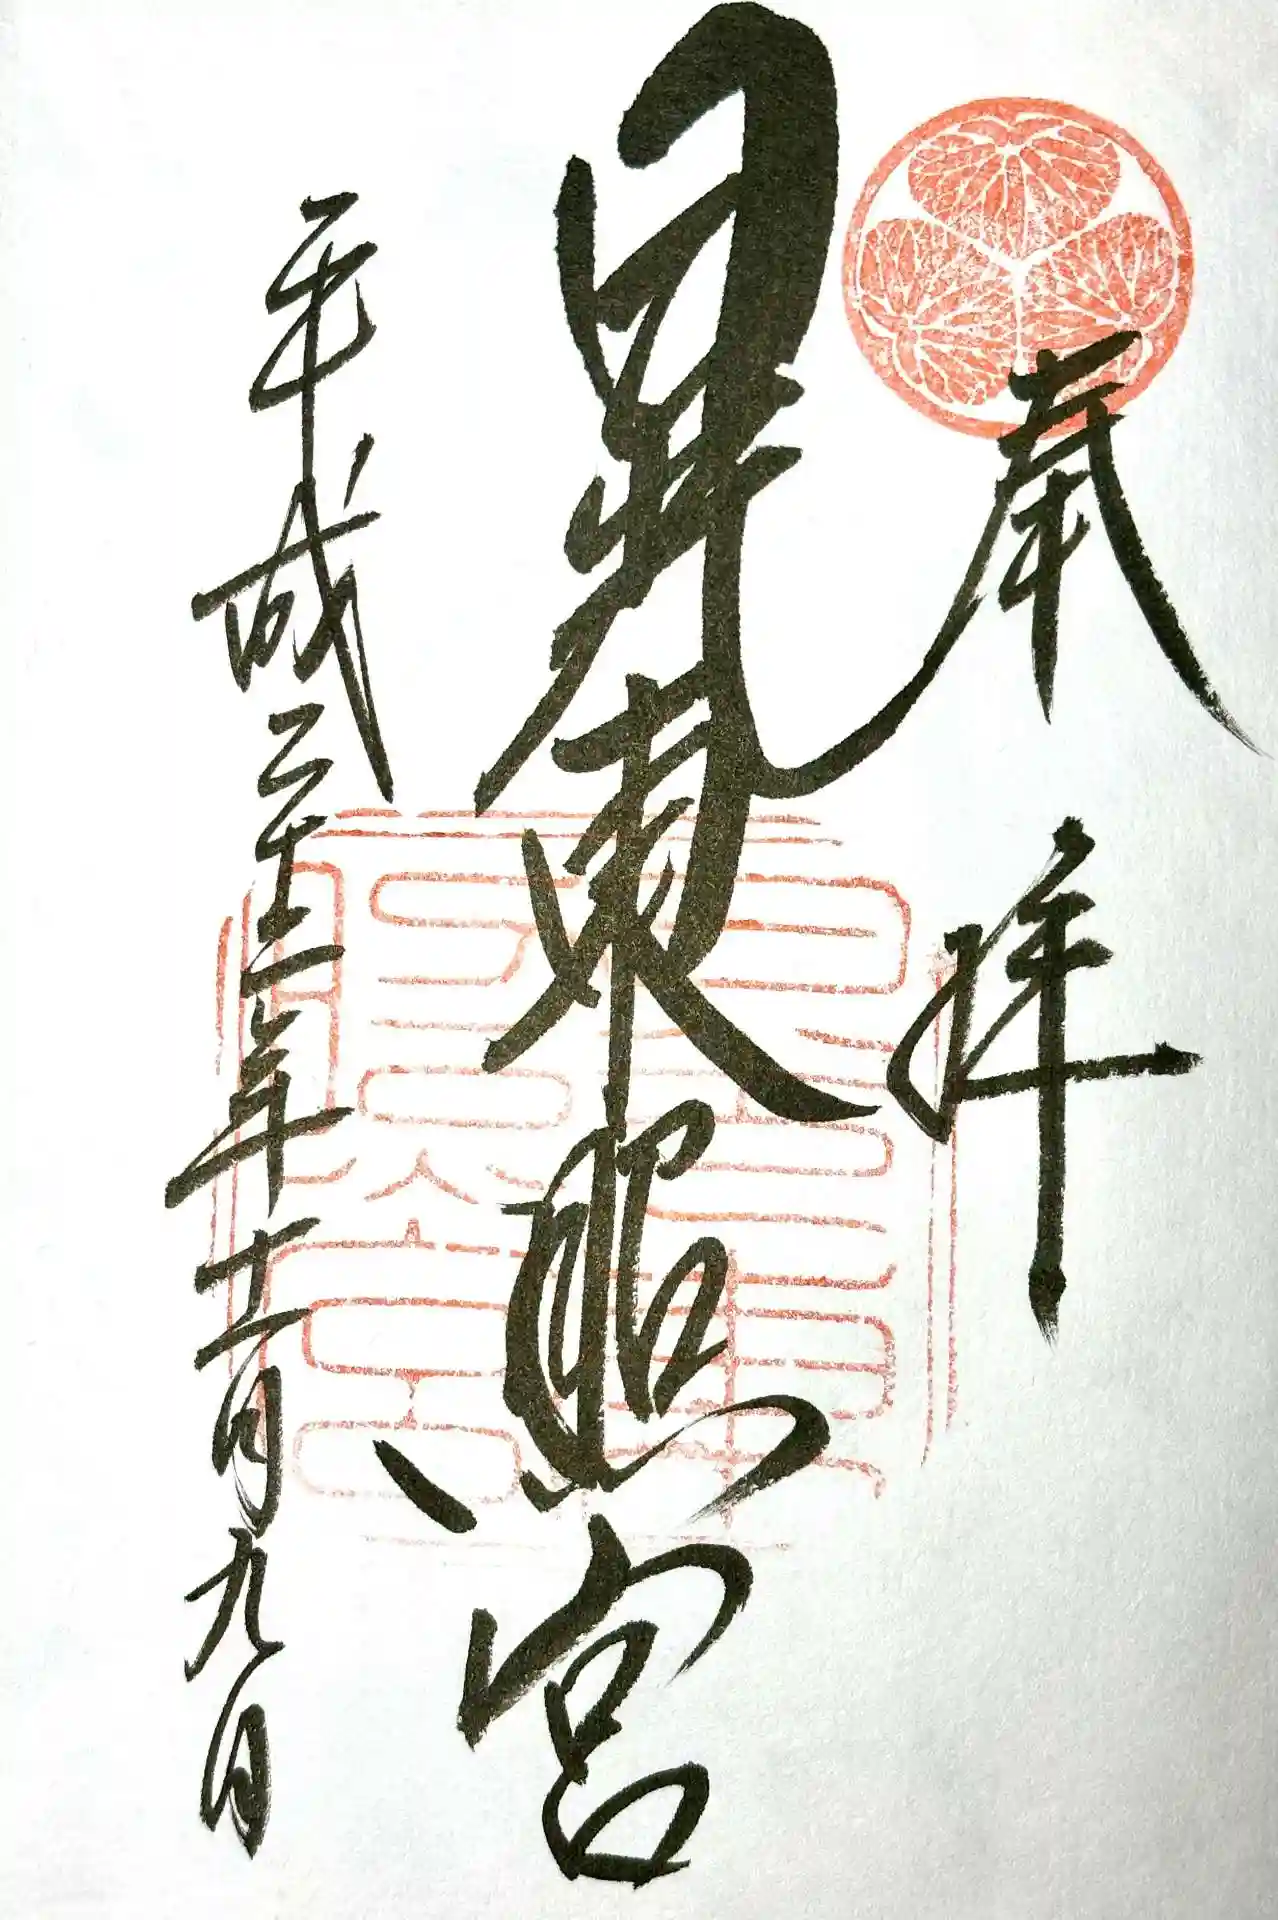 奉拝
日光東照宮
平成二十三年十二月九日